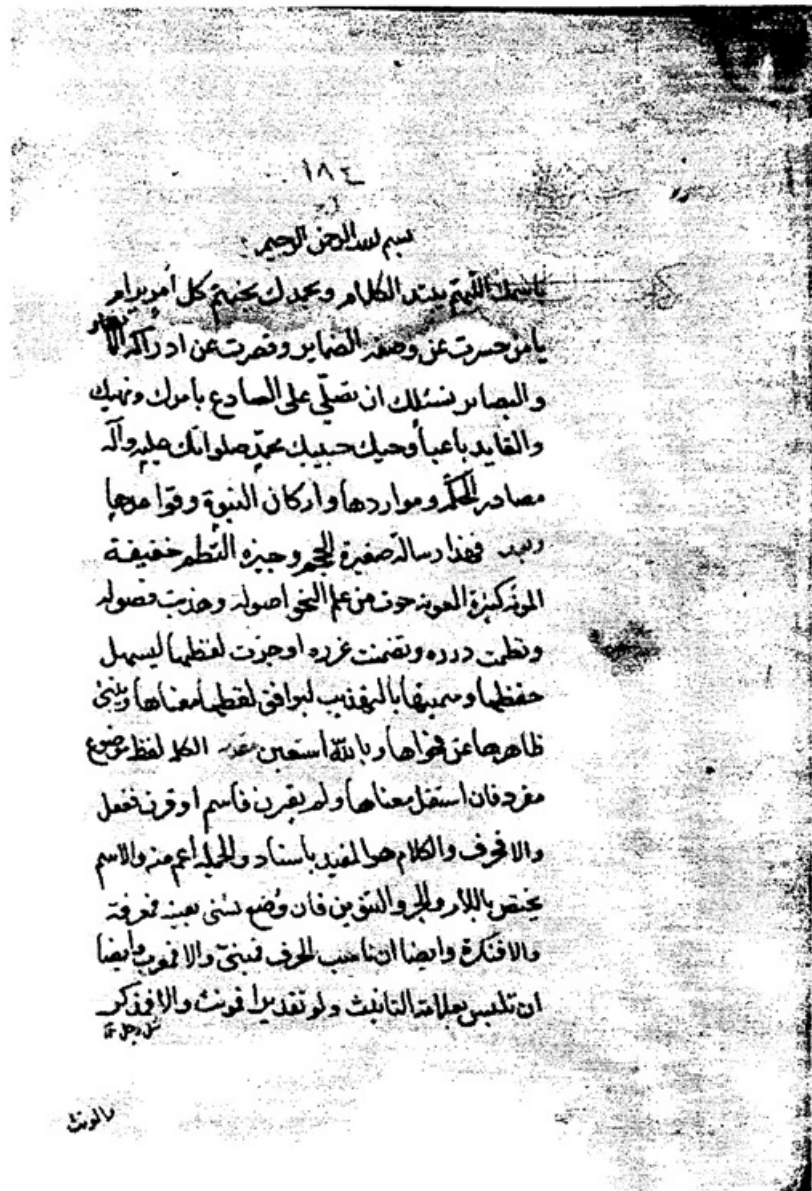 ١٨٤
بسم الله الرحمن الرحيم
باسمك اللهم يبتدء الكلام وبحمدك يختتم كل أمر يرام
يا من حسرت عن وصفه الضماير وقصرت عن ادراكه الابصار
والبصاير نسئلك ان تصلي على الصادع بامرك ونهيك
والقايد باعباء وحيك حبيبك محمد صلواتك عليه وآله
مصادر الحكم ومواردها واركان النبوة وقواعدها
وبعد فهذا رسالة صغيرة الحجم وجيزه النظم خفيفة
المونه كثيرة المعونه حوت من علم النحو اصوله وهذبت فصوله
ونظمت درره وتضمنت غرره اوجزت لفظها ليسهل
حفظها وسميتها بالتهذيب ليوافق لفظها معناها
ظاهرها عن فحواها وبالله استعين الكلمه لفظ موضوع
مفرد فان استقل معناها ولم يقترن فاسم او قرن ففعل
والا فحرف والكلام هو المفيد باسناد والجملة اعم منه والاسم
يختص باللام والجر والتنوين فان وضع لشئ بعينه فمعرفة
والا فنكرة وايضا ان ناسب الحرف فمبني والا فمعرب وايضا
ان تلبس بعلامة التانيث ولو تقديرا فمونث والا فمذكر
والمونث